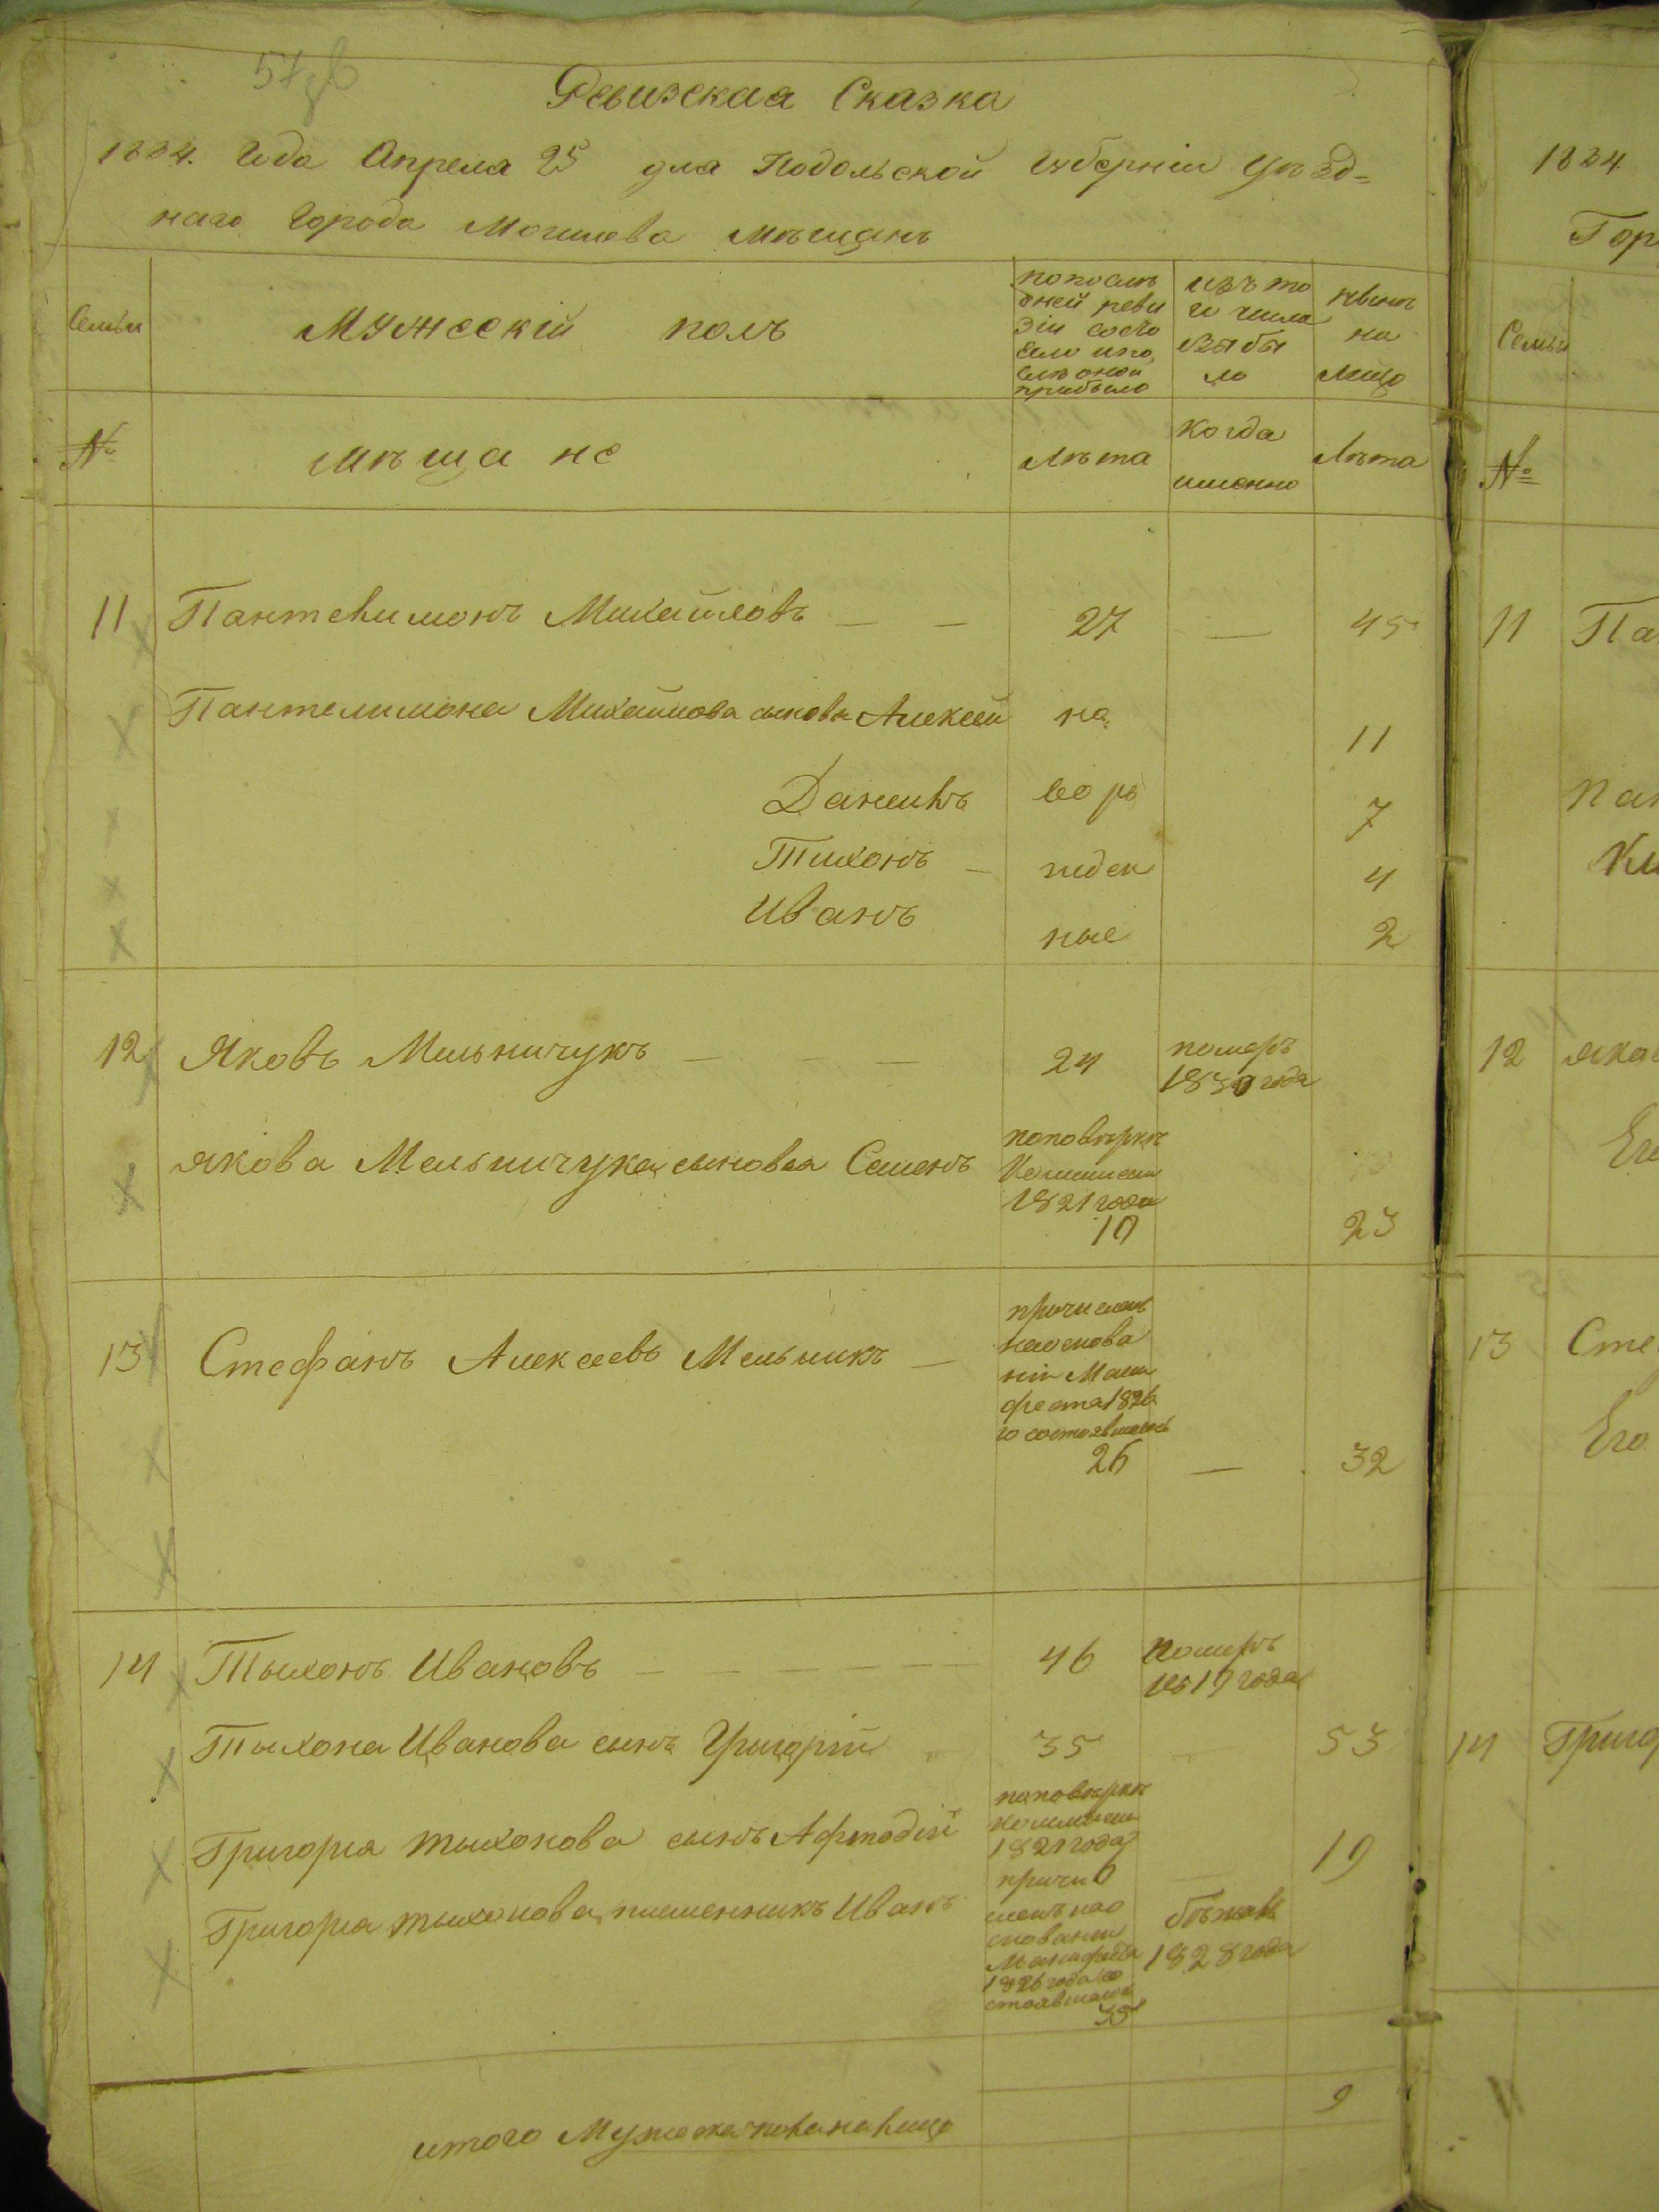 57 об
Ревизская Сказка
1834. Года Апреля 25 для Подольской Губерніи Уѣзд=
наго Города Могилева мѣщанъ
Семьи
Мужескій полъ
по послѣ
дней реви
зіи состо
яло и по
слѣ оной
прибыло
изъ то
го числа
выбы
ло
нынѣ
на
лицо
№
мѣщане
лѣта
когда
именно
лѣта
11 Пантелимонъ Михайловъ — — 27 — 45
Пантелимона Михайлова сыновья Алексей но 11
Данилъ во рь 7
Тихонъ — жден 4
Иванъ ные 2
12 Яковъ Мельничукъ — — — 24 померъ
1830 года
Якова Мельничука сыновья Семенъ
по повѣркѣ
Комиссіи
1821 года
10 23
13 Стефанъ Алексеевъ Мельникъ —
причисленъ
на основа
ніи Мани
феста 1826
го состоявшагось
26 — 32
14 Тыхонъ Ивановъ — — — — — 46 померъ
1819 года
Тыхона Иванова сынъ Григорій 35 53
Григорія Тыхонова сынъ Афтодій
по повѣркѣ
коммисіи
1821 года
6 — 19
Григорія Тыхонова племенникъ Иванъ
причи
сленъ на о
снованіи
Манифеста
1826 года со
стоявшагось
35
бѣжалъ
1828 года
итого Мужеска пола на лицо 9
1834
Гор
Семьи
№
11 Па
Пан
12 Яков
Его
13 Сте
Его
14 Григо